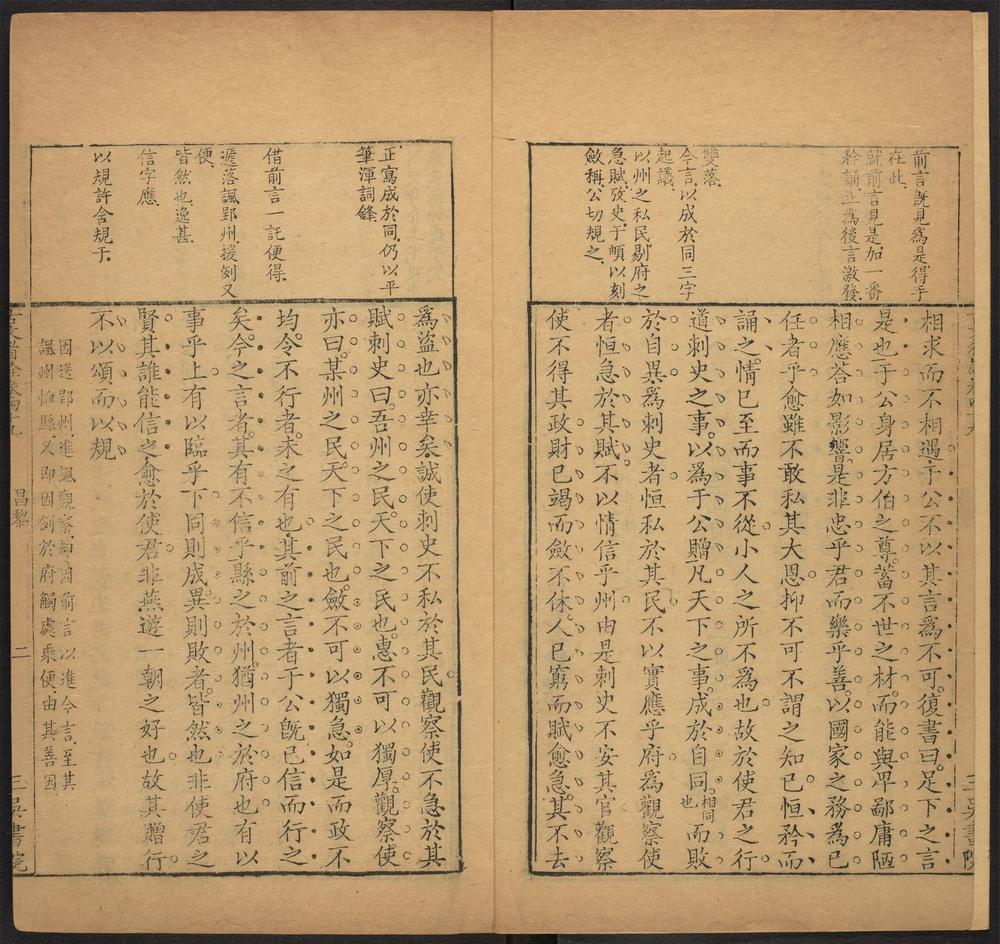 前言旣見爲是得乎
在此
就前言見是加一番
矜誦正爲後言激發
雙落
今言以成於同三字
起議
以州之私民剔府之
急賦攷史于頔以刻
斂稱公切規之
相求而不相遇于公不以其言爲不可復書曰足下之言
是也于公身居方伯之尊蓄不世之材而能與卑鄙庸陋
相應荅如影響是非忠乎君而樂乎善以國家之務爲已
任者乎愈雖不敢私其大恩抑不可不謂之知已恒矜而
誦之情已至而事不從小人之所不爲也故於使君之行
道刺史之事以爲于公贈凡天下之事成於自同相同也而敗
於自異爲刺史者恒私於其民不以實應乎府爲觀察使
者恒急於其賦不以情信乎州由是刺史不安其官觀察
使不得其政財已竭而斂不休人已窮而賦愈急其不去
正寫成於同仍以平
筆渾詞鋒
借前言一託便得
遞落諷郢州援例又
便
皆然也逸甚
信字應
以規許舍規于
爲盜也亦幸矣誠使刺史不私於其民觀察使不急於其
賦刺史曰吾州之民天下之民也惠不可以獨厚觀察使
亦曰某州之民天下之民也斂不可以獨急如是而政不
均令不行者未之有也其前之言者于公旣已信而行之
矣今之言者其有不信乎縣之於州猶州之於府也有以
事乎上有以臨乎下同則成異則敗者皆然也非使君之
賢其誰能信之愈於使君非燕遊一朝之好也故其贈行
不以頌而以規
因送郢州進諷觀察却因前言以進今言至其
諷州恤縣又即因例於府觸處乘便由其善因
昌黎
二
三吳書院